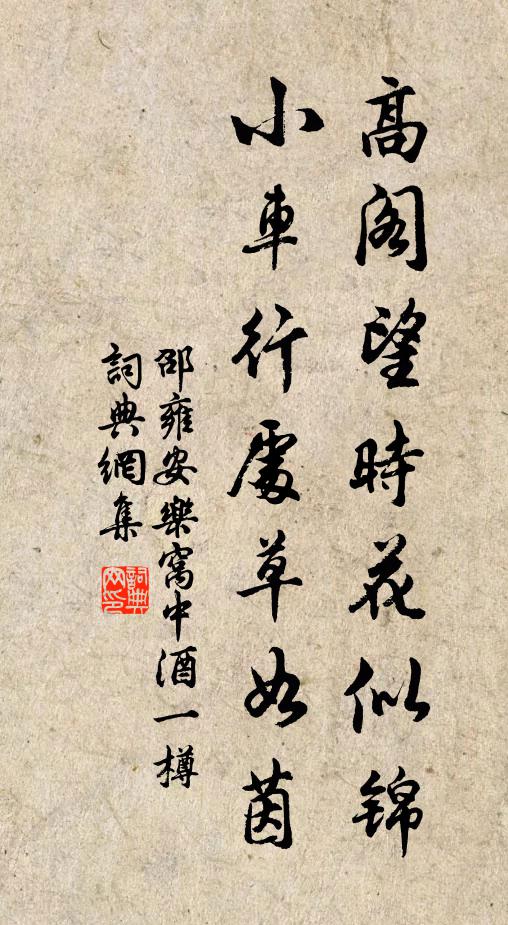 高阁望時花似锦
小車行處草如茵
邵雍安樂窩中酒一樽
詞典網集
詞典网印